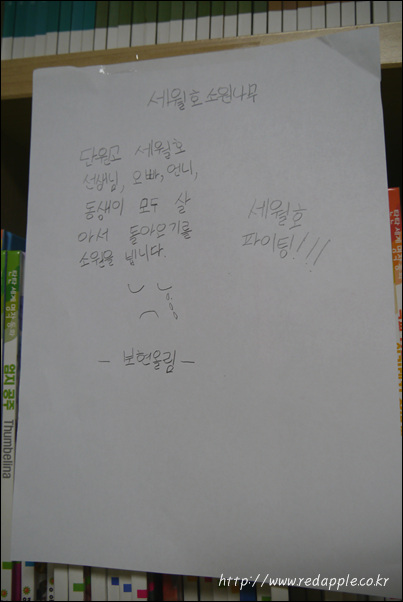 세월호 소원나무
단원고 세월호
선생님, 오빠, 언니,
동생이 모두 살
아서 돌아오기를
소원을 빕니다.
세월호
파이팅!!!!
- 보현올림 -
엄지 공주
Thumbelina
http://www.redapple.co.kr